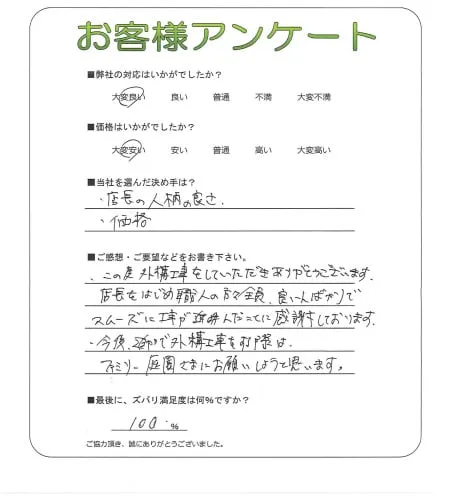 お客様アンケート
■弊社の対応はいかがでしたか？
大変良い 良い 普通 不満 大変不満
■価格はいかがでしたか？
大変安い 安い 普通 高い 大変高い
■当社を選んだ決め手は？
・店長の人柄の良さ．
・価格
■ご感想・ご要望などをお書き下さい。
・この度外構工事をしていただきありがとうございます．
店長をはじめ職人の方々全員、良い人ばかりで
スムーズに工事が進んだことに感謝しております．
・今後、で外構工事をする際は、
ファミリー庭園さまにお願いしようと思います。
■最後に、ズバリ満足度は何％ですか？
100 ％
ご協力頂き、誠にありがとうございました。